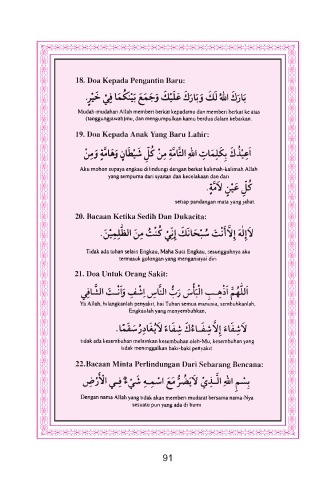 18. Doa Kepada Pengantin Baru:
بَارَكَ اللهُ لَكَ وَبَارَكَ عَلَيْكَ وَجَمَعَ بَيْنَكُمَا فِيْ خَيْرٍ.
Mudah-mudahan Allah memberi berkat kepadamu dan memberi berkat ke atas
(tanggungjawab)mu, dan mengumpulkan kamu berdua dalam kebaikan.
19. Doa Kepada Anak Yang Baru Lahir:
اُعِيْذُكَ بِكَلِمَاتِ اللهِ التَّامَّةِ مِنْ كُلِّ شَيْطَانٍ وَهَامَّةٍ وَمِنْ
Aku mohon supaya engkau dilindungi dengan berkat kalimah-kalimah Allah
yang sempurna dari syaitan dan kecelakaan dan dari
كُلِّ عَيْنٍ لاَمَّةٍ.
setiap pandangan mata yang jahat.
20. Bacaan Ketika Sedih Dan Dukacita:
لاَإِلَهَ إِلاَّ أَنْتَ سُبْحَانَكَ إِنِّيْ كُنْتُ مِنَ الظَّلِمِيْنَ.
Tidak ada tuhan selain Engkau, Maha Suci Engkau, sesungguhnya aku
termasuk golongan yang menganiayai diri
21. Doa Untuk Orang Sakit:
اَللّهُمَّ اَذْهِبِ الْبَأْسَ رَبُّ النَّاسِ اِشْفِ وَاَنْتَ الشَّافِي
Ya Allah, hilangkanlah penyakit, hai Tuhan semua manusia, sembuhkanlah.
Engkaulah yang menyembuhkan,
لاَشِفَاءَ إِلاَّشِفَاءُكَ شِفَاءً لاَيُغَادِرُ سَقَمًا.
tidak ada kesembuhan melainkan kesembuhan oleh-Mu, kesembuhan yang
tidak meninggalkan baki-baki penyakit
22.Bacaan Minta Perlindungan Dari Sebarang Bencana:
بِسْمِ اللهِ الَّذِيْ لاَيَضُرُّ مَعَ اسْمِهِ شَيْءٌ فِي الْأَرْضِ
Dengan nama Allah yang tidak akan memberi mudarat bersama nama-Nya
sesuatu pun yang ada di bumi
91